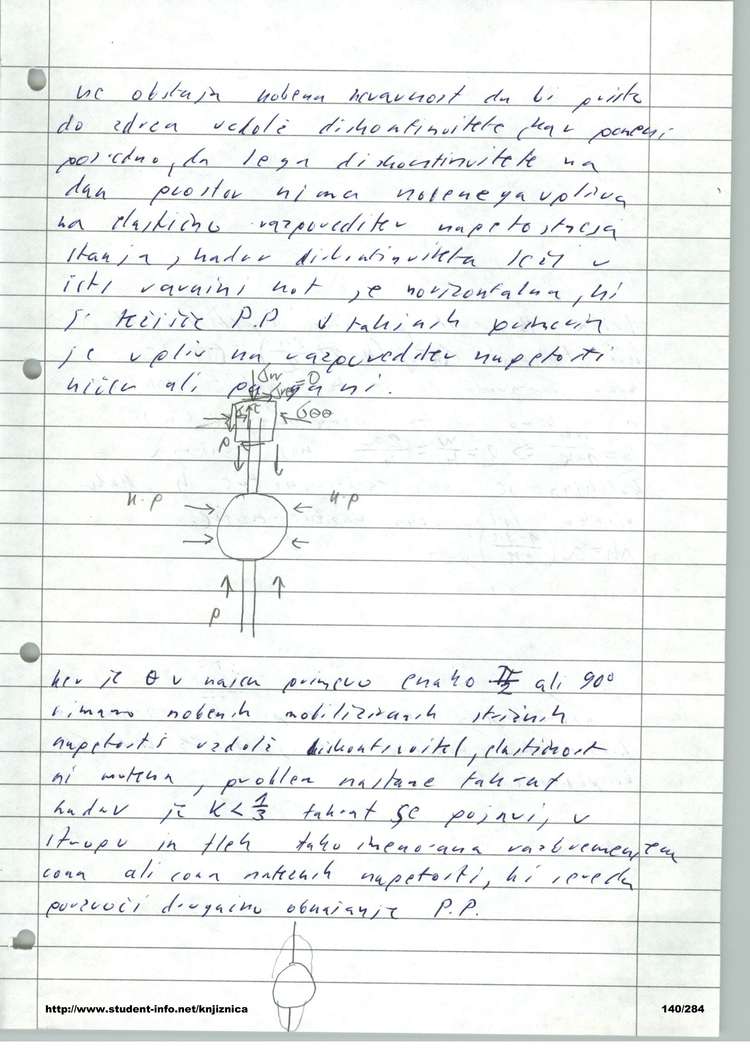 ne obstaja nobena nevarnost da bi prišlo
do zdrsa vzdolž diskontinuitete, kar pomeni
posledično, da lega diskontinuitete na
dan prostor nima nobenega vpliva
na elastično razporeditev napetostnega
stanja, kadar diskontinuiteta leži v
isti ravnini kot je horizontalna, ki
težišče P.P. V takšnih primerih
je vpliv na razporeditev napetosti
ničen ali pa ga ni.
σrr
σrθ=0
τ
σθθ
P
K·P
K·P
P
ker je θ v našem primeru enako π/2 ali 90°
nimamo nobenih mobiliziranih strižnih
napetosti vzdolž diskontinuitet, elastičnost
ni motena, problem nastane takrat
kadar je K < 1/3 takrat se pojavi, v
stropu in tleh tako imenovana razbremenjena
cona ali cona nateznih napetosti, ki seveda
povzroči drugačno obnašanje P.P.
http://www.student-info.net/knjiznica
140/284